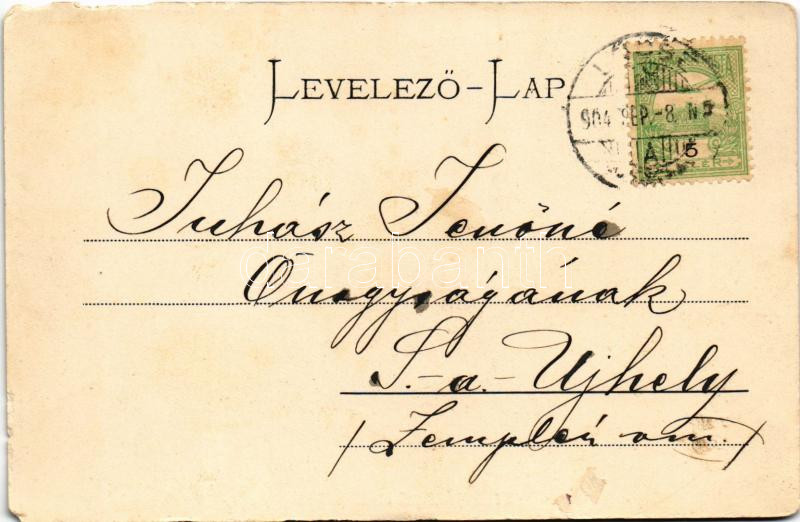 LEVELEZŐ-LAP
904 SEP.-8. N 5
A 5
Juhász Jenőné
Őnagyságának
S.-a.-Ujhely
/Zemplén vm./
darabanth